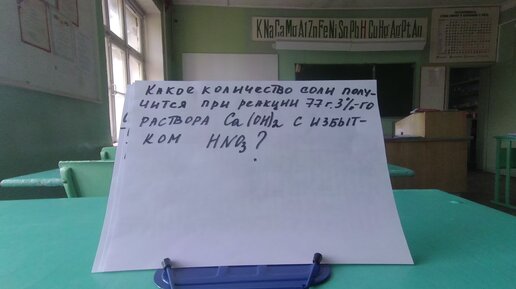 K Na Ca Mg Al Zn Fe Ni Sn Pb H Cu Hg Ag Pt Au
КАКОЕ КОЛИЧЕСТВО СОЛИ ПОЛУ-
ЧИТСЯ ПРИ РЕАКЦИИ 77 г. 3%-ГО
РАСТВОРА Ca(OH)2 С ИЗБЫТ-
КОМ HNO3?